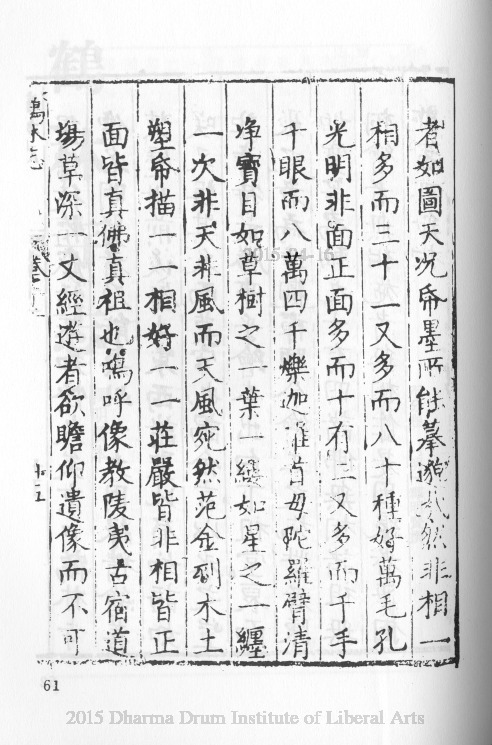 者如圖天况帋墨所能摹邈哉然非相一
相多而三十一又多而八十種好萬毛孔
光明非面正面多而十有二又多而千手
千眼而八萬四千爍迦羅首母陀羅臂清
净寶目如草樹之一葉一縷如星之一纏
一次非天非風而天風宛然范金刻木土
塑帋描一一相好一一莊嚴皆非相皆正
面皆真佛真祖也嗚呼像教陵夷古宿道
場草深一丈經遊者欲瞻仰遺像而不可
61
2015 Dharma Drum Institute of Liberal Arts